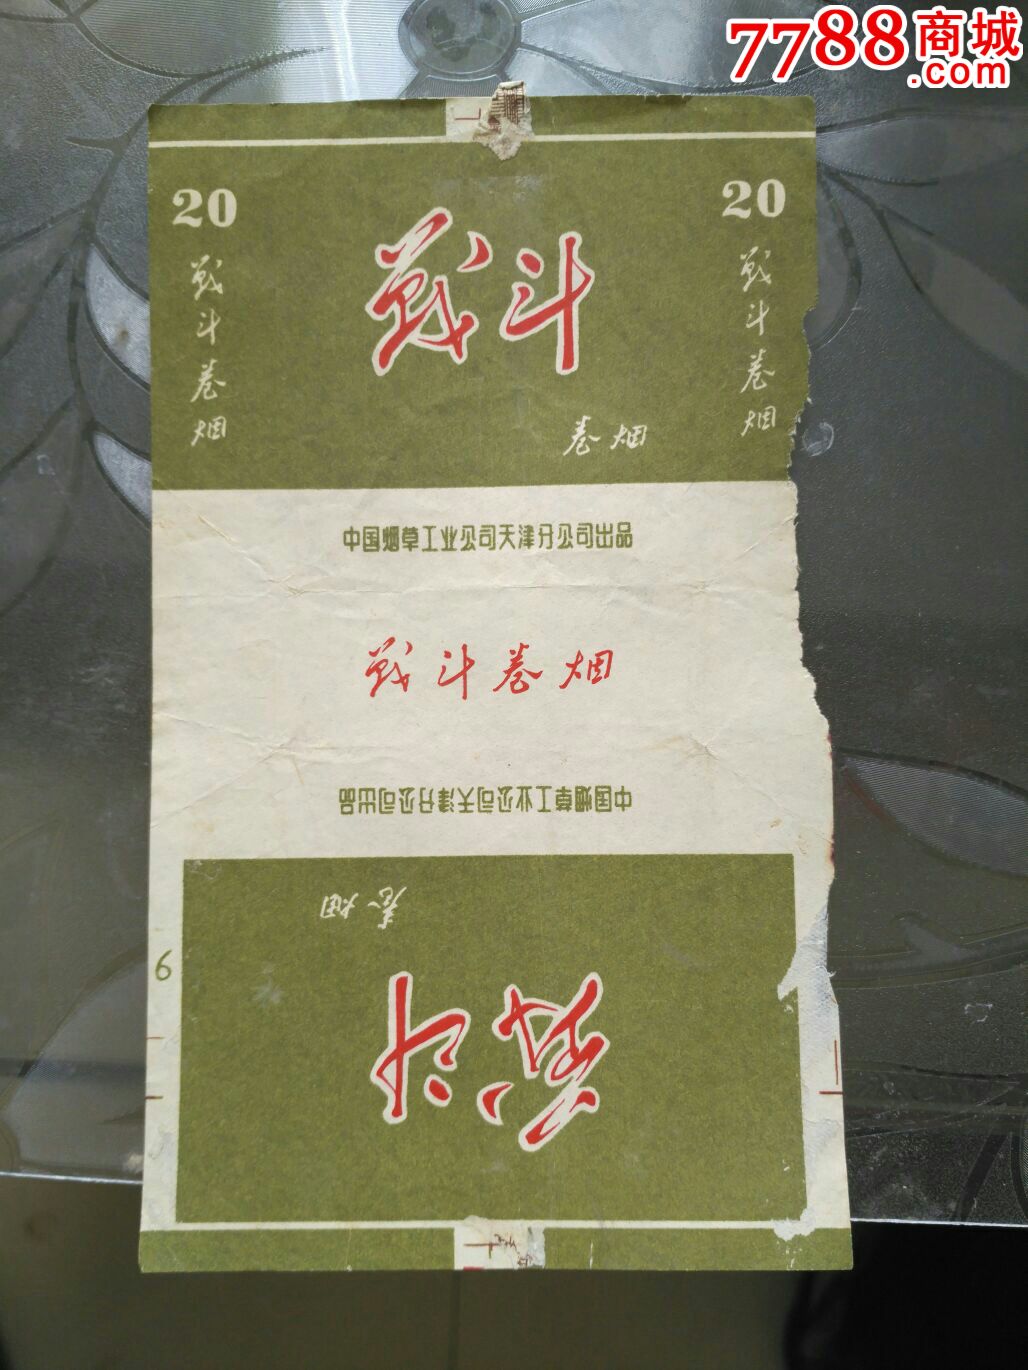 7788商城
.com
20
20
战斗
战斗卷烟
战斗卷烟
卷烟
中国烟草工业公司天津分公司出品
战斗卷烟
中国烟草工业公司天津分公司出品
卷烟
6
战斗